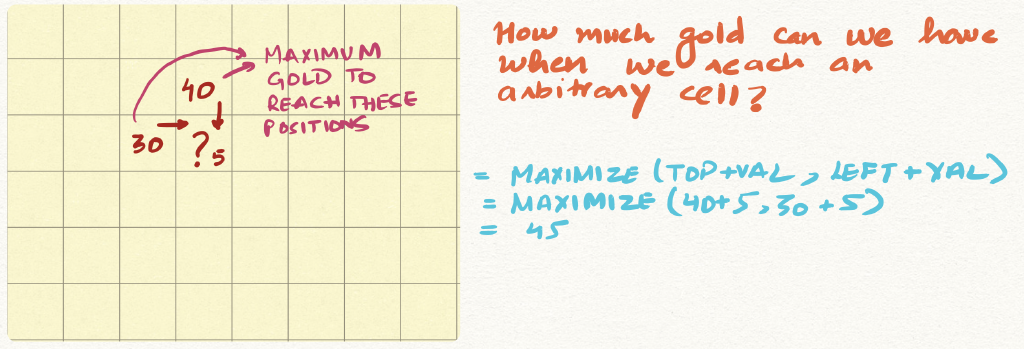 MAXIMUM
GOLD TO
REACH THESE
POSITIONS
40
30 ? 5
How much gold can we have
when we reach an
arbitrary cell?
= MAXIMIZE (TOP+VAL, LEFT+VAL)
= MAXIMIZE (40+5, 30+5)
= 45